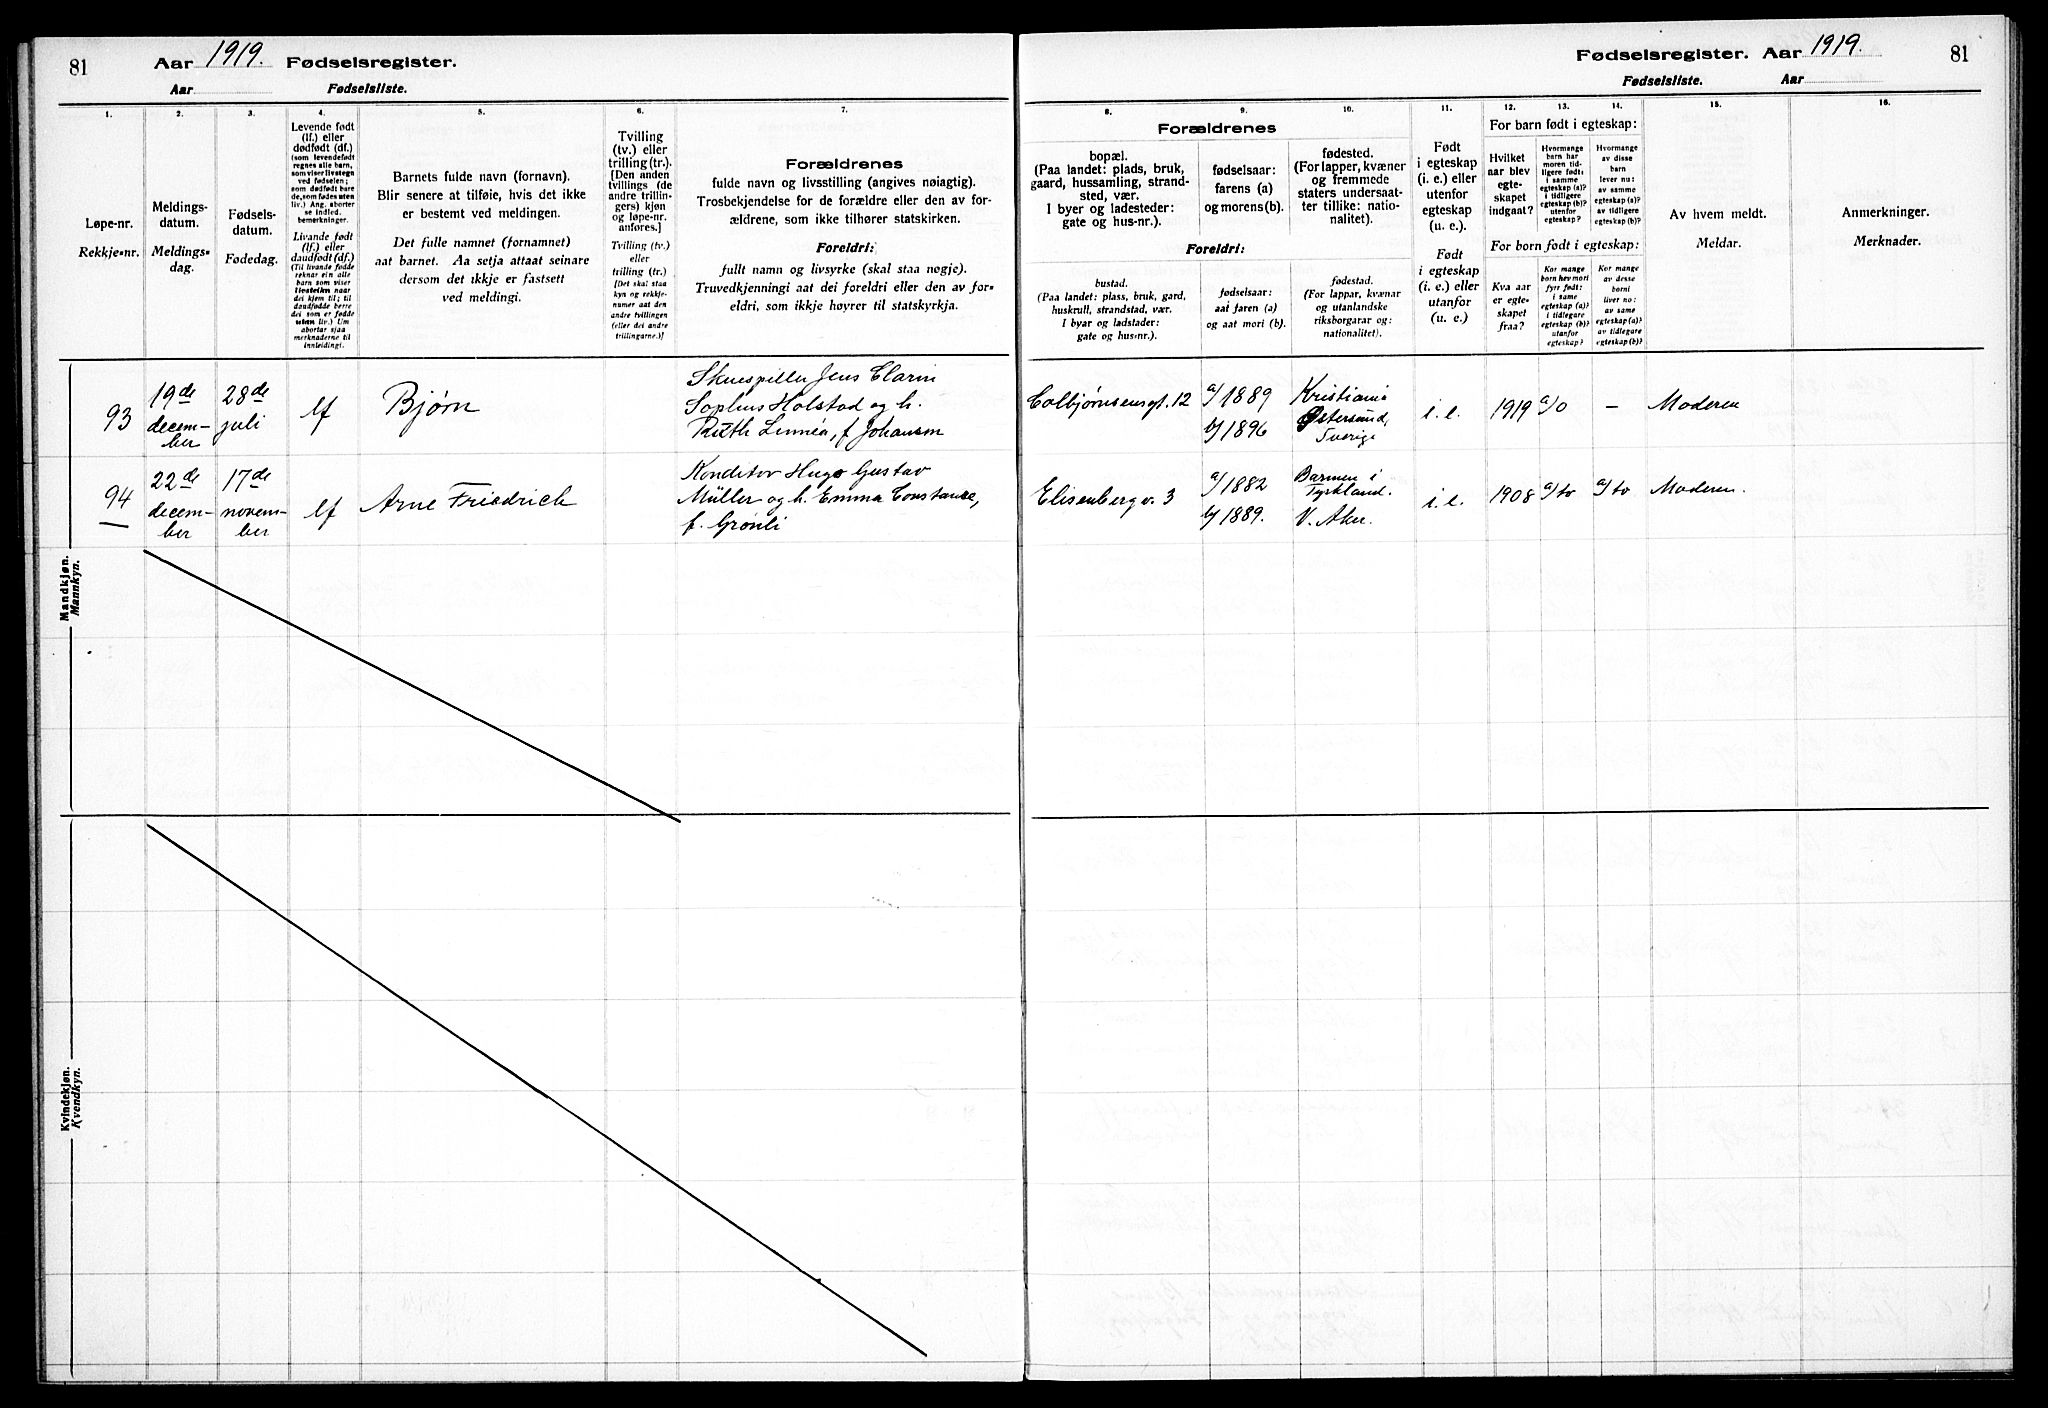 81
Aar 1919. Fødselsregister.
Aar Fødselsliste.
1.
2.
3.
4.
5.
6.
7.
Løpe-nr.
Rekkje-nr.
Meldings-
datum.
Meldings-
dag.
Fødsels-
datum.
Fødedag.
Levende født
(lf.) eller
dødfødt (df.)
(som levendefødt
regnes alle barn,
som viser livstegn
ved fødselen;
som dødfødt bare
de, som fødes uten
liv.) Ang. aborter
se indled.
bemerkninger.
Livande født
(lf.) eller
daudfødt (df.)
(Til livande fødde
reknar ein alle
barn som viser
livsteikn naar
dei kjem til; til
daudfødde berre
dei som er fødde
uten liv.) Um
abortar sjaa
merknaderne til
innleidingi.
Barnets fulde navn (fornavn).
Blir senere at tilføie, hvis det ikke
er bestemt ved meldingen.
Det fulle namnet (fornamnet)
aat barnet. Aa setja attaat seinare
dersom det ikkje er fastsett
ved meldingi.
Tvilling
(tv.) eller
trilling (tr.).
[Den anden
tvillings (de
andre trillin-
gers) kjøn
og løpe-nr.
anføres.]
Tvilling (tv.)
eller
trilling (tr.)
[Det skal staa
kyn og rekkje-
numer aat den
andre tvillingen
(eller dei andre
trillingarne.)]
Forældrenes
fulde navn og livsstilling (angives nøiagtig).
Trosbekjendelse for de forældre eller den av for-
ældrene, som ikke tilhører statskirken.
Foreldri:
fullt namn og livsyrke (skal staa nøgje).
Truvedkjenningi aat dei foreldri eller den av for-
eldri, som ikkje høyrer til statskyrkja.
Mandkjøn.
Mannkyn.
93
19de
decem-
ber
28de
juli
lf
Bjørn
Skuespiller Jens Clarin
Sophus Holstad og h.
Ruth Linnéa, f. Johansen
94
22de
decem-
ber
17de
novem-
ber
lf
Arne Friedrich
Konditor Hugo Gustav
Müller og h. Emma Constanse,
f. Grønli
Kvindekjøn.
Kvendkyn.
Fødselsregister. Aar 1919. 81
Fødselsliste. Aar
8.
9.
10.
11.
12.
13.
14.
15.
16.
Forældrenes
bopæl.
(Paa landet: plads, bruk,
gaard, hussamling, strand-
sted, vær.
I byer og ladesteder:
gate og hus-nr.).
fødselsaar:
farens (a)
og morens (b).
fødested.
(For lapper, kvæner
og fremmede
staters undersaat-
ter tillike: natio-
nalitet).
Foreldri:
bustad.
(Paa landet: plass, bruk, gard,
huskrull, strandstad, vær.
I byar og ladstader:
gate og hus-nr.).
fødselsaar:
aat faren (a)
og aat mori (b).
fødestad.
(For lappar, kvænar
og utanlandske
riksborgarar og:
nationalitet).
Født
i egteskap
(i. e.) eller
utenfor
egteskap
(u. e.).
Født
i egteskap
(i. e.) eller
utanfor
(u. e.)
For barn født i egteskap:
Hvilket
aar blev
egte-
skapet
indgaat?
Hvormange
barn har
moren tid-
ligere født:
i samme
egteskap (a)?
i tidligere
egteskap (b)?
utenfor
egteskap?
Hvormange
av disse
barn
lever nu:
av samme
egteskap (a)?
av tidligere
egteskap (b)?
For born født i egteskap:
Kva aar
er egte-
skapet
fraa?
Kor mange
born hev mori
fyrr født:
i same
egteskap (a)?
i tidlegare
egteskap (b)?
utanfor
egteskap?
Kor mange
av desse
borni
liver no:
av same
egteskap (a)?
av tidlegare
egteskap (b)?
Av hvem meldt.
Meldar.
Anmerkninger.
Merknader.
Colbjørnsensgt. 12
a/1889
b/1896
Kristiania
Østersund,
Sverige
i. e.
1919
a/o
–
Moderen
Elisenbergv. 3
a/1882
b/1889.
Barmen i
Tyskland.
V. Aker.
i. e.
1908
a/to
a/to
Moderen.